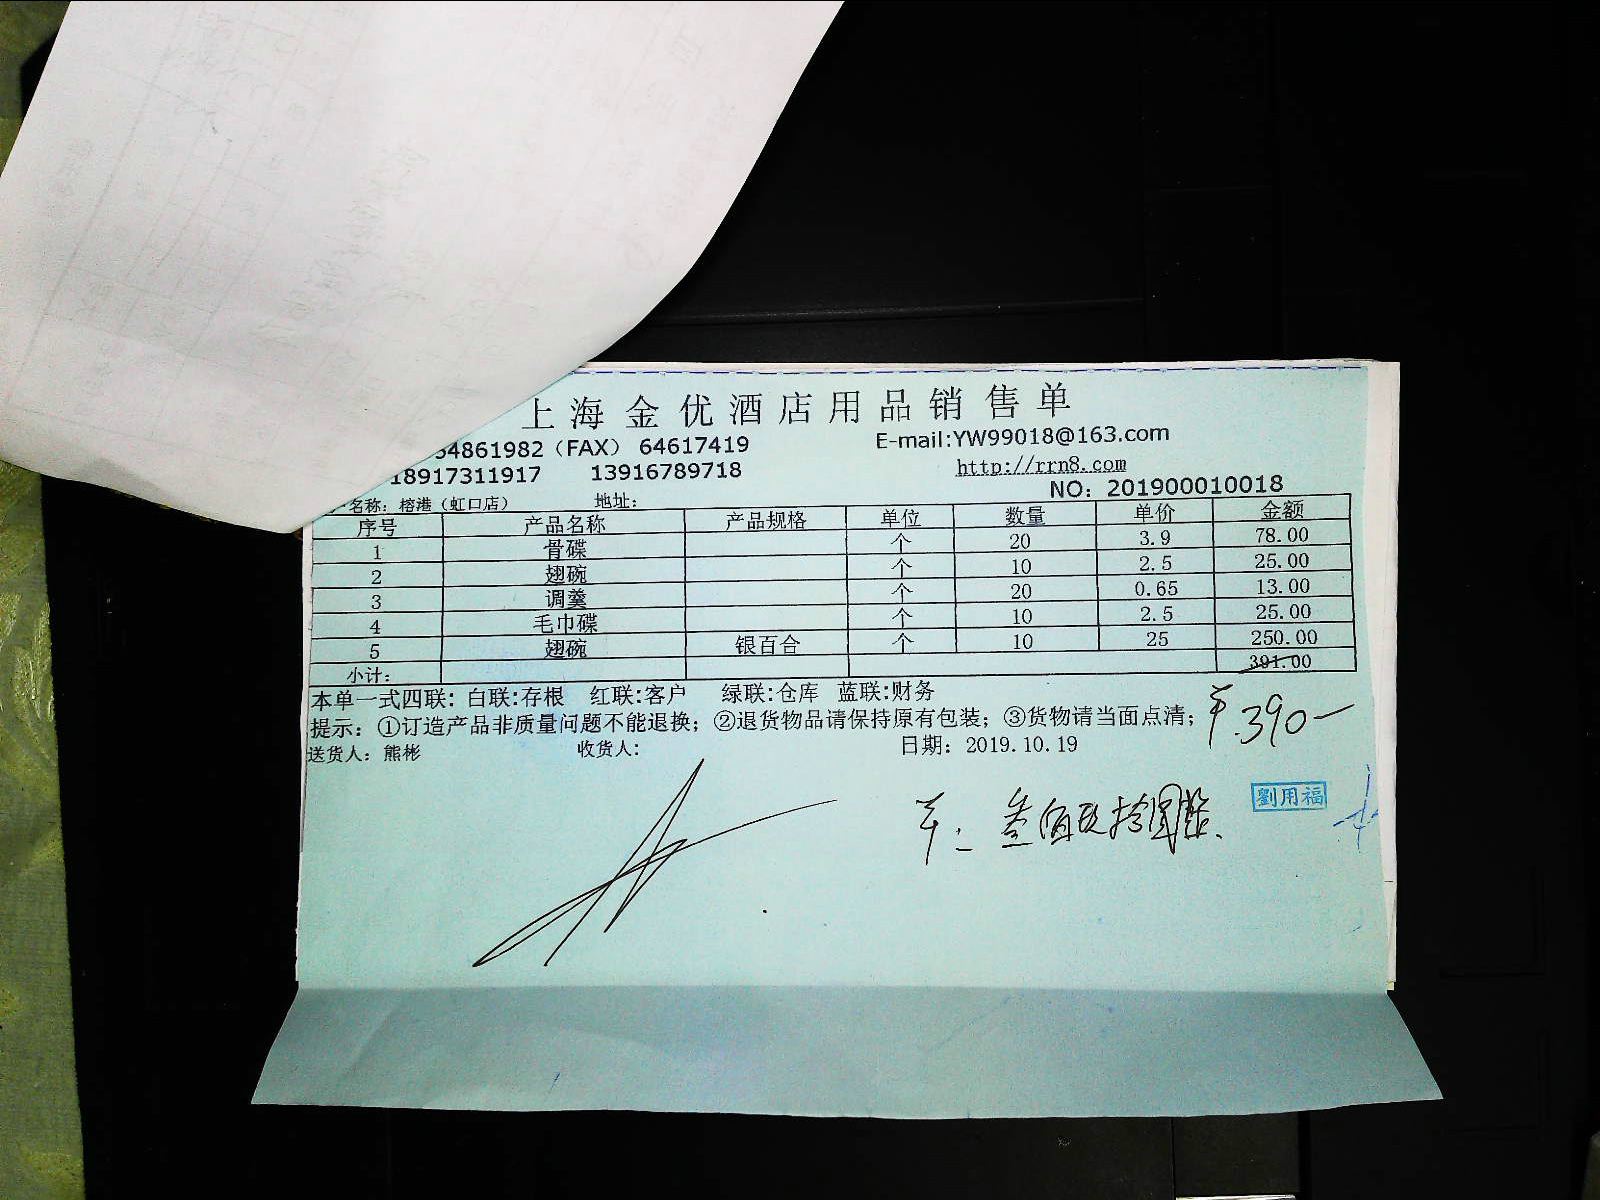 上海金优酒店用品销售单
54861982（FAX） 64617419 E-mail:YW99018@163.com
18917311917 13916789718 http://rrn8.com
NO：201900010018
名称：榕港（虹口店） 地址：
序号 产品名称 产品规格 单位 数量 单价 金额
1 骨碟 个 20 3.9 78.00
2 翅碗 个 10 2.5 25.00
3 调羹 个 20 0.65 13.00
4 毛巾碟 个 10 2.5 25.00
5 翅碗 银百合 个 10 25 250.00
小计： 391.00
本单一式四联：白联:存根 红联:客户 绿联:仓库 蓝联:财务
提示：①订造产品非质量问题不能退换；②退货物品请保持原有包装；③货物请当面点清；
¥.390—
送货人：熊彬 收货人： 日期：2019.10.19
劉用福
¥：叁佰玖拾圆整.